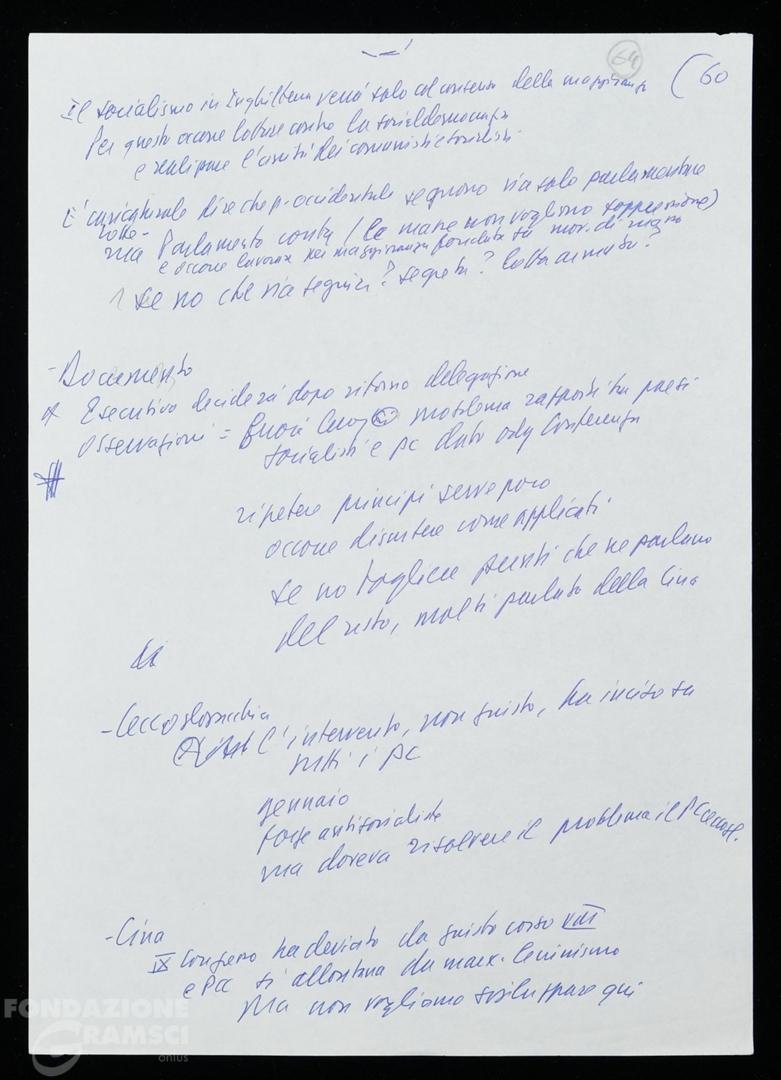 64
(60
Il socialismo in Inghilterra verrà solo col consenso della maggioranza
Per questo occorre lottare contro la socialdemocrazia
e realizzare l'unità dei comunisti e socialisti
È caricaturale dire che p. occidentale seguono via solo parlamentare
lotte -
ma Parlamento conta (le masse non vogliono soppressione)
e occorre lavorare per maggioranza fondata su mov. di massa
se no che via seguire? segreta? lotta armata?
- Documento
Esecutivo deciderà dopo ritorno delegazione
osservazioni = problema rapporti tra paesi
socialisti e pc dato odg Conferenza
ripetere principi serve poco
occorre discutere come applicati
se no togliere punti che ne parlano
del resto, molti parlato della Cina
- Cecoslovacchia
L'intervento, non giusto, ha inciso su
tutti i pc
gennaio
forze antisocialiste
ma doveva risolvere il problema il PC cecosl.
- Cina
IX Congresso ha deviato da giusto corso VIII
e PCC si allontana da marx. leninismo
Ma non vogliamo sviluppare qui
FONDAZIONE
GRAMSCI
onlus